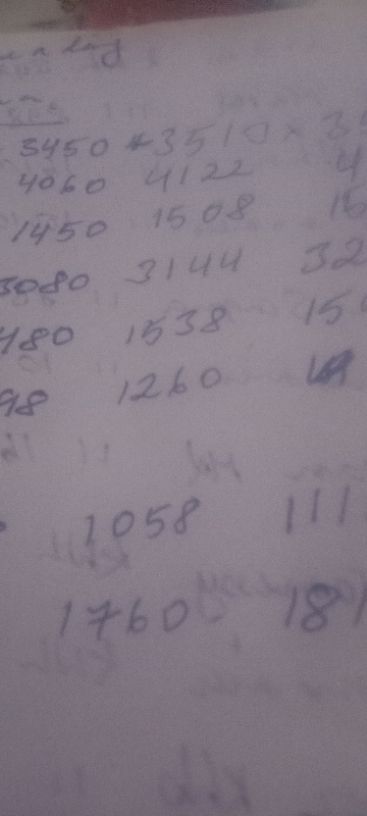 a day
3450 * 3510 x 3
4060 4122 4
1450 1508 15
3080 3144 32
480 1538 15
98 1260
1058 111
1760 181